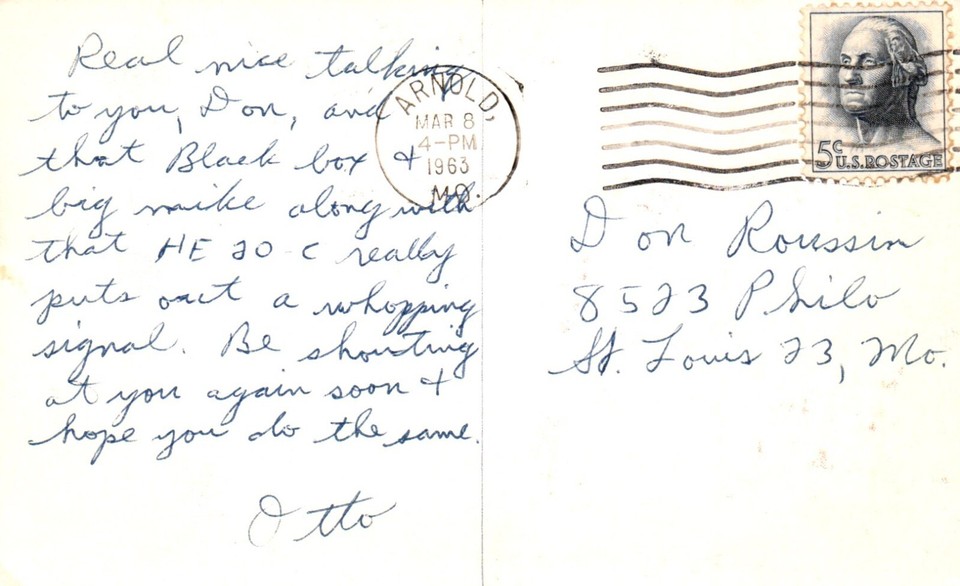 Real nice talking
to you, Don, and
that Black box &
big mike along with
that HE 20-C really
puts out a whopping
signal. Be shouting
at you again soon &
hope you do the same.
Otto
ARNOLD,
MAR 8
4-PM
1963
MO.
5c
U.S. POSTAGE
Don Roussin
8523 Philo
St. Louis 23, Mo.